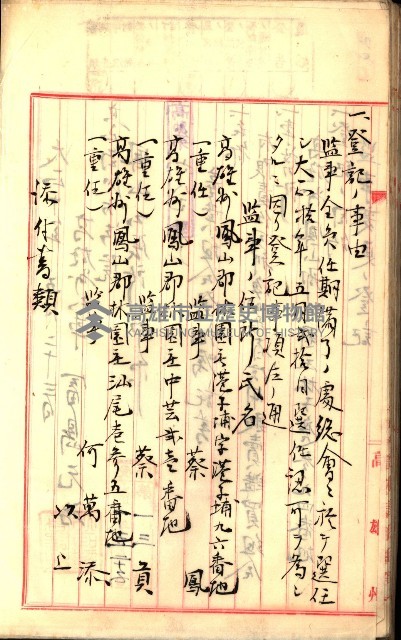 一、登記ノ事由
監事全員任期満了ノ處総會ニ於テ選任
シ大正拾年五月貳拾日選任認可ヲ為シ
タルニ因リ登記事項左ノ通
監事ノ住所氏名
高雄州鳳山郡林園庄港子埔字港子埔九六番地
(重任) 監事 蔡 鳳
高雄州鳳山郡林園庄中芸貳壹番地
(重任) 監事 蔡 貢
高雄州鳳山郡林園庄汕尾巷參五番地
(重任) 監事 何萬添
添付書類
以上
高雄市立歷史博物館
KAOHSIUNG MUSEUM OF HISTORY
高雄州